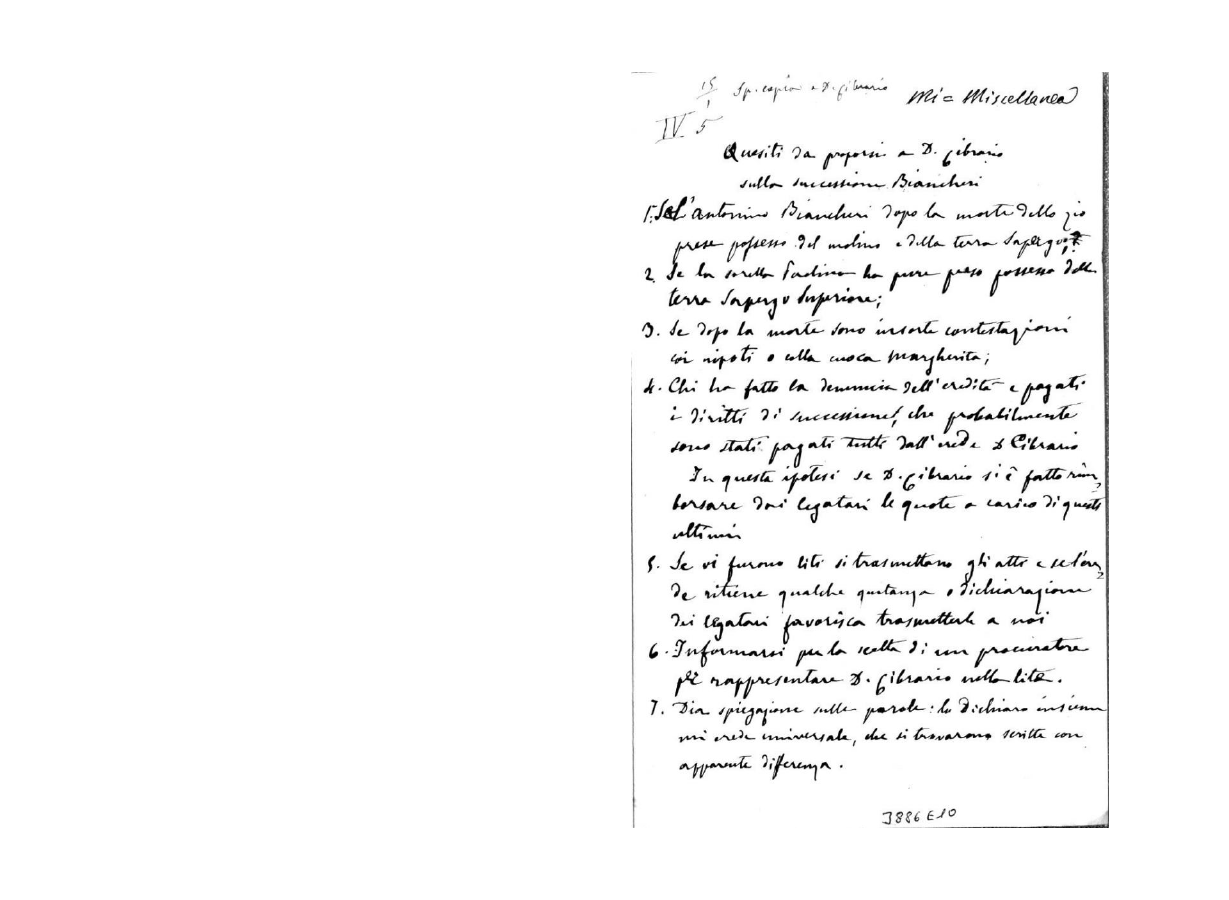 15/1 Sp. copia a D. Cibrario
Mi = Miscellanea
IV. 5
Quesiti da proporsi a D. Cibrario
sulla successione Biancheri
1. Se l'Antonino Biancheri dopo la morte dello zio
prese possesso del molino e della terra Sapergo;
2. Se la sorella Paolina ha pure preso possesso della
terra Sapergo Superiore;
3. Se dopo la morte sono insorte contestazioni
coi nipoti o colla cuoca Margherita;
4. Chi ha fatto la denuncia dell'eredità e pagati
i diritti di successione, che probabilmente
sono stati pagati tutti dall'erede D Cibrario
In questa ipotesi se D. Cibrario si è fatto rim
borsare dai legatari le quote a carico di questi
ultimi
5. Se vi furono liti si trasmettano gli atti e se l'ere
de ritiene qualche quetanza o dichiarazione
dei legatari favorisca trasmetterle a noi
6. Informarsi per la scelta di un procuratore
per rappresentare D. Cibrario nella lite.
7. Dia spiegazione sulle parole: lo dichiaro insieme
mi erede universale, che si trovarono scritte con
apparente differenza.
3886 E10